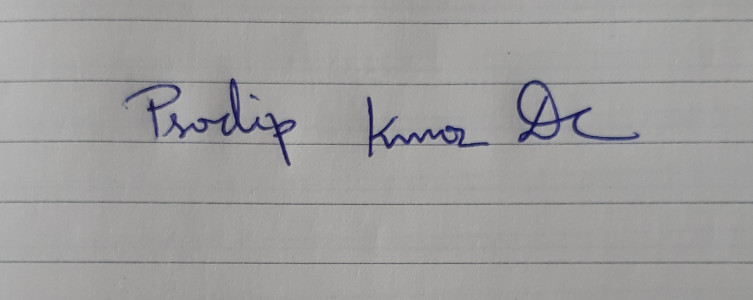 Prodip Kumar De